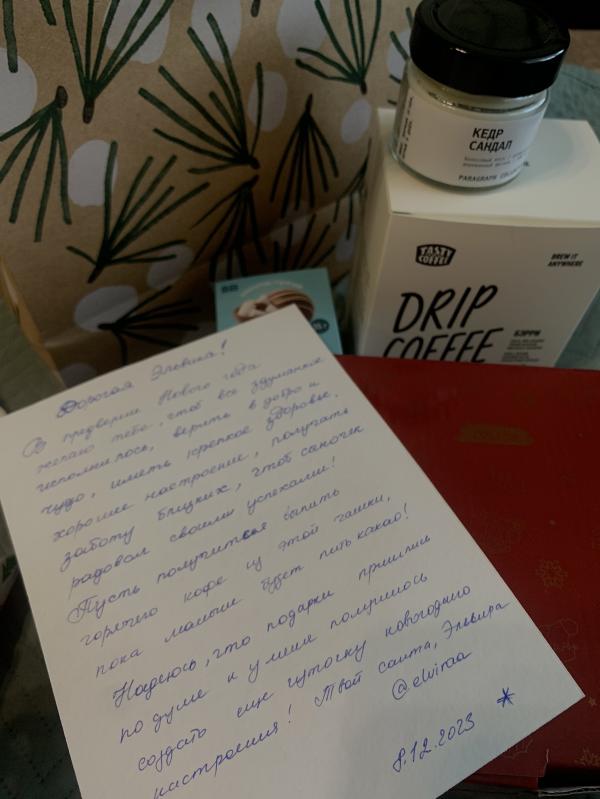 КЕДР
САНДАЛ
PARAGRAPH
TASTY
COFFEE
BREW IT
ANYWHERE
DRIP
COFFEE
БЭРРИ
Дорогая Эльвика!
В преддверии Нового года
желаю тебе, чтоб все задуманное
исполнилось, верить в добро и
чудо, иметь крепкое здоровье,
хорошее настроение, получать
заботу близких, чтоб сыночек
радовал своими успехами!
Пусть получиться выпить
горячего кофе из этой чашки,
пока малыш будет пить какао!
Надеюсь, что подарки пришлись
по душе и у меня получилось
создать еще чуточку новогоднего
настроения! Твой санта, Эльвира
@elviraa
8.12.2023